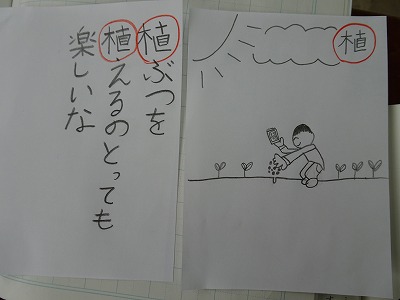 植ぶつを
植えるのとっても
楽しいな
植